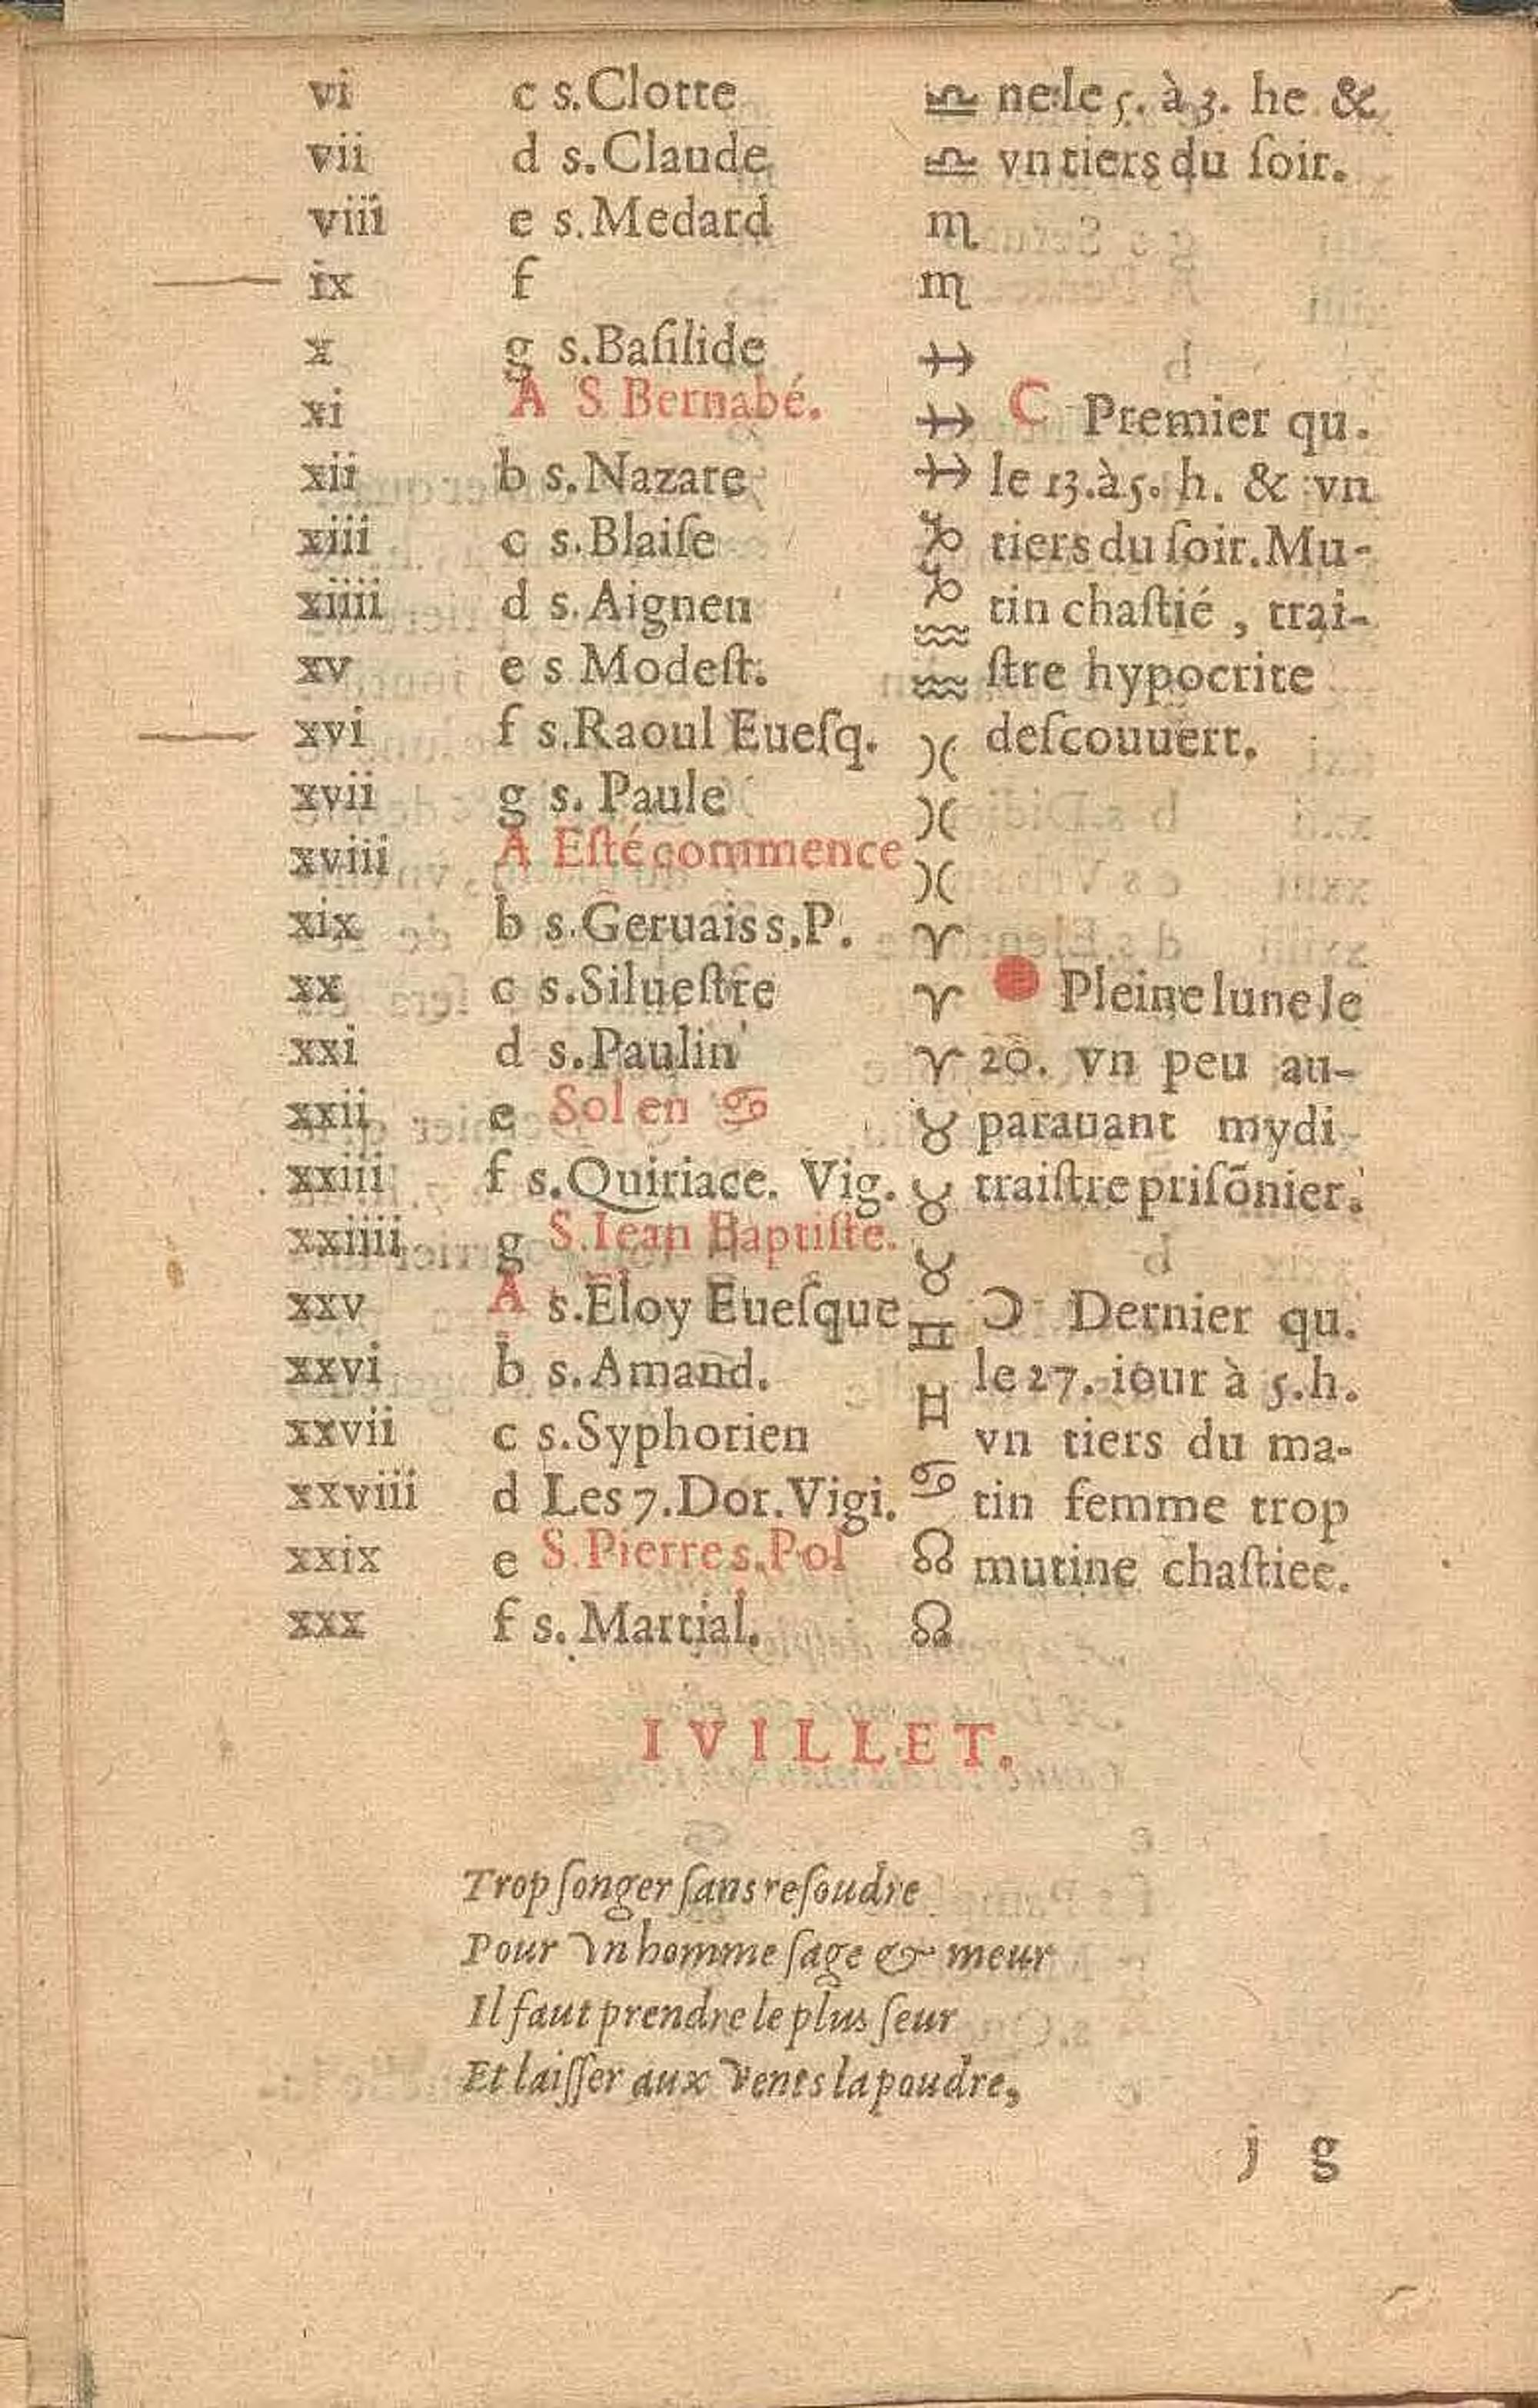 vi c s.Clotte ♎ ne le 5. à 3. he &
vii d s.Claude ♎ vn tiers du ſoir.
viii e s.Medard ♏
ix f ♏
x g s.Baſilide ♐
xi A S Bernabé. ♐ C Premier qu.
xii b s.Nazare ♐ le 13.à 5. h. & vn
xiii c s.Blaiſe ♑ tiers du ſoir.Mu-
xiiii d s.Aignen ♑ tin chaſtié , trai-
♒
xv e s Modeſt. ♒ ſtre hypocrite
xvi f s.Raoul Eueſq. ♓ deſcouuert.
xvii g s. Paule ♓
xviii A Eſté commence ♓
xix b s.Geruais s.P. ♈
xx c s.Silueſtre ♈ ● Pleine lune le
xxi d s.Paulin ♈ 20. vn peu au-
xxii e Sol en ♋ ♉ parauant mydi
xxiii f s.Quiriace. Vig. ♉ traiſtre priſõnier.
xxiiii g S.Iean Baptiſte. ♉
xxv A s.Eloy Eueſque ♊ Ɔ Dernier qu.
xxvi b s.Amand. ♊ le 27. iour à 5.h.
xxvii c s.Syphorien vn tiers du ma-
xxviii d Les 7.Dor.Vigi. ♋ tin femme trop
xxix e S.Pierre s.Pol ♌ mutine chaſtiee.
xxx f s. Martial. ♌
IVILLET.
Trop ſonger ſans reſoudre
Pour vn homme ſage & meur
Il faut prendre le plus ſeur
Et laiſſer aux vents la poudre,
j g